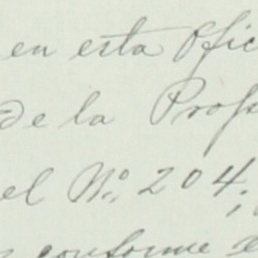 en esta Ofic
de la Prop
el Nº. 204;
conforme e